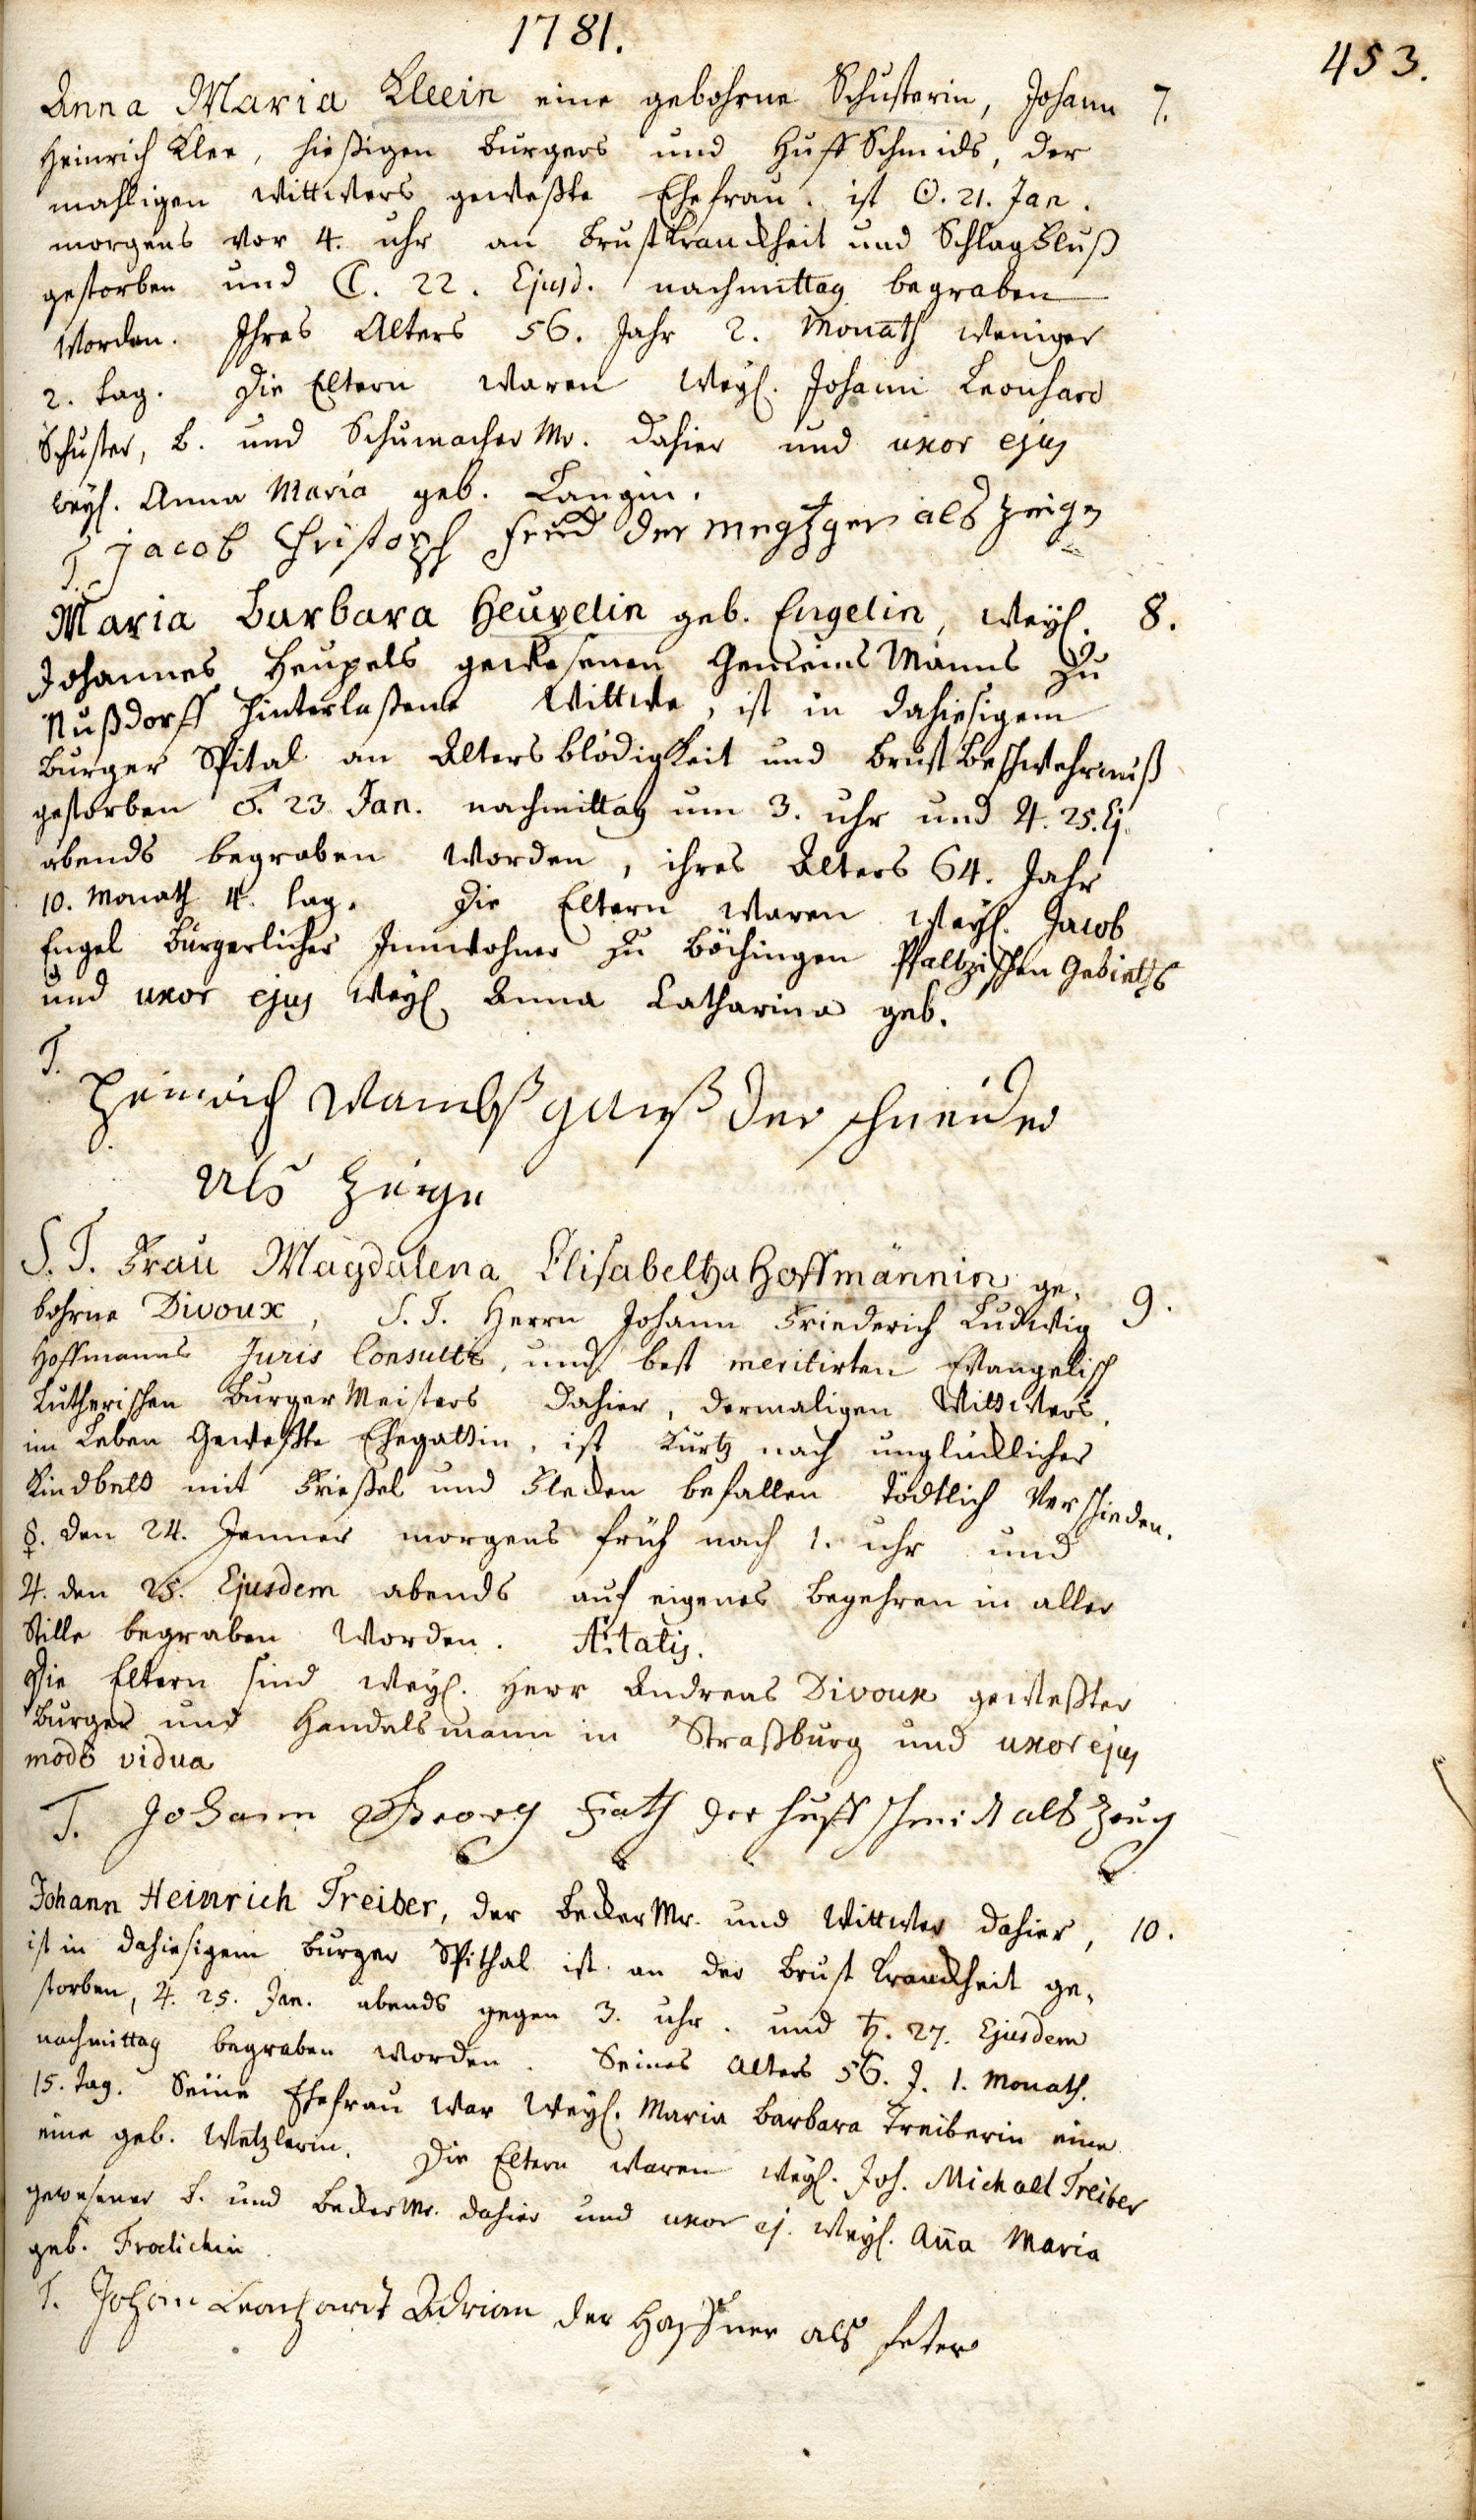 1781.
453.
Anna Maria Kleein eine gebohrne Schusterin, Johann 7.
Heinrich Klee, hießigen Burgers und Huff Schmids, der
mahligen Wittwers geweßte Ehefrau. ist ☉. 21. Jan.
morgens vor 4. uhr an Brustkranckheit und Schlagfluß
gestorben und ☾. 22. Ejusd. nachmittag begraben
worden. Ihres Alters 56. Jahr 2. Monath weniger
2. tag. Die Eltern waren weyl. Johann Leonhard
Schuster, B. und Schumacher Mr. dahier und uxor ejus
weyl. Anna Maria geb. Langin.
T. Jacob Christoph der megtzger als zeige
Maria Barbara Heupelin geb. Engelin, weyl. 8.
Johannes Heupels gewesenen Gemeins Manns zu
Nußdorff hinterlaßene Wittwe, ist in dahiesigem
Burger Spital an Alters blödigkeit und Brust Beschwehrnuß
gestorben ♂. 23 Jan. nachmittag um 3. uhr und ♃. 25. Ej.
abends begraben worden, ihres Alters 64. Jahr
10. Monath 4. tag. Die Eltern waren weyl. Jacob
Engel bürgerlicher Innwohner zu Böchingen Pfaltzischen Gebieths
und uxor ejus weyl. Anna Catharina geb.
T.
Heinrich Wambsganß der schneider
als zeige
S. T. Frau Magdalena Elisabetha Hoffmännin ge- 9.
bohrne Divoux, S. T. Herrn Johann Friederich Ludwig
Hoffmanns Juris Consulti, und best meritirten Evangelisch
Lutherischen Burger Meisters dahier, dermaligen Wittwers,
im Leben Geweßte Ehegattin, ist kurtz nach unglücklicher
Kindbett mit Frießel und Flecken befallen tödtlich verschieden.
☿. den 24. Jenner morgens früh nach 1. uhr und
♃. den 25. Ejusdem abends auf eigenes Begehren in aller
Stille begraben worden. Ætatis.
Die Eltern sind weyl. Herr Andreas Divoux geweßter
Burger und Handelsmann in Straßburg und uxor ejus
modo vidua
T. Johann Georg Fath der huffschmidt als zeug
Johann Heinrich Treiber, der Becker Mr. und Wittwer dahier, 10.
ist in dahiesigem Burger Spithal ist an der Brust Kranckheit ge-
storben, ♃. 25. Jan. abends gegen 3. uhr. und ♄. 27. Ejusdem
nachmittag begraben worden. Seines Alters 56. J. 1. Monath.
15. tag. Seine Ehefrau war weyl. Maria Barbara Treiberin eine
eine geb. Wetzlerin. Die Eltern waren weyl. Joh. Michael Treiber
gewesener B. und Becker Mr. dahier und uxor ej. weyl. Aña Maria
geb. Froelichin
T. Johann Leonhardt Adrian der Haffner als